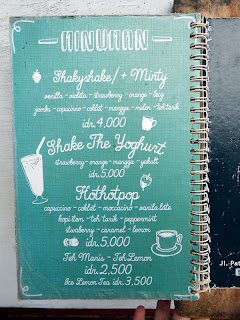 MINUMAN
Shakyshake/+ Minty
vanilla - violitta - strawberry - orange - lecy
jambu - capucino - coklat - mangga - melon - teh tarik
idr.4,000
Shake The Yoghurt
strawberry - orange - mangga - yakult
idr.5,000
Hothotpop
capucino - coklat - moccacino - vanila latte
kopi item - teh tarik - peppermint
strawberry - caramel - lemon
idr.5,000
Teh Manis - Teh Lemon
idr.2,500
Ice Lemon Tea idr.3,500
Jl. Pat